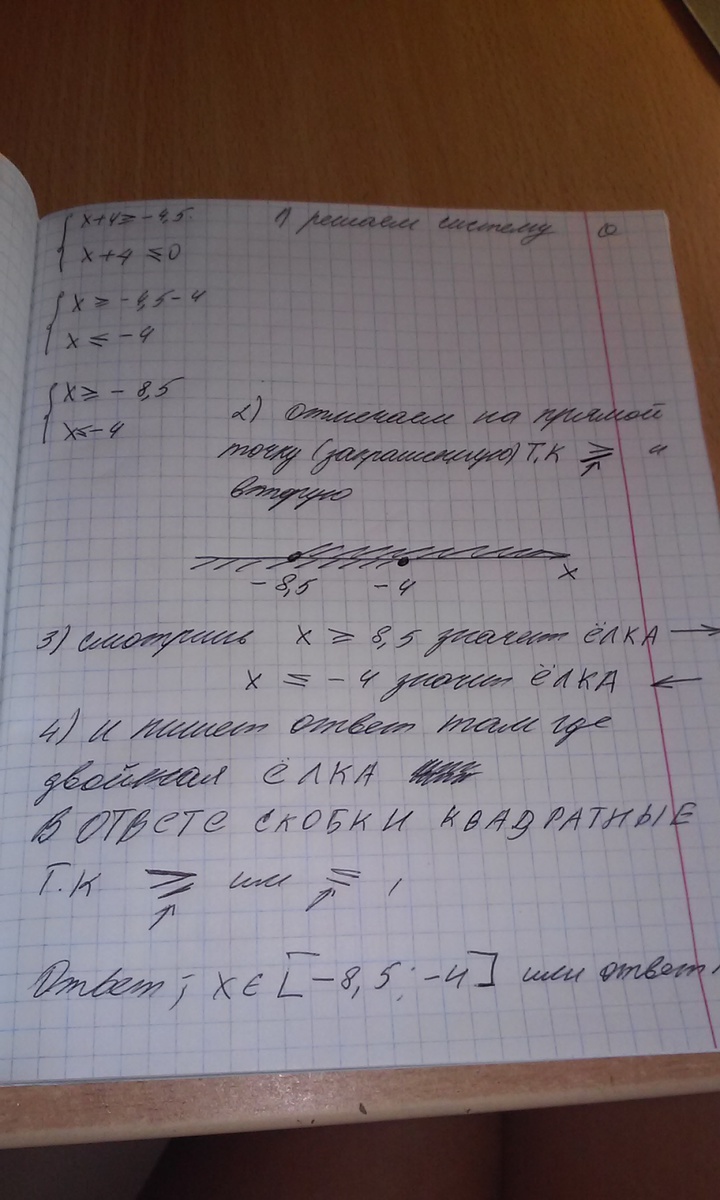 x+4≥-4,5. 1) решаем систему
x+4≤0
x≥-4,5-4
x≤-4
x≥-8,5
x≤-4
2) отмечаем на прямой
точку (закрашенную) Т.К ≥ и
вторую
-8,5 -4 x
3) смотришь x≥8,5 значит ЁЛКА →
x≤-4 значит ЁЛКА ←
4) и пишет ответ там где
двойная ЁЛКА
В ОТВЕТЕ СКОБКИ КВАДРАТНЫЕ
Т.К ≥ или ≤ ,
Ответ; x∈[-8,5; -4] или ответ